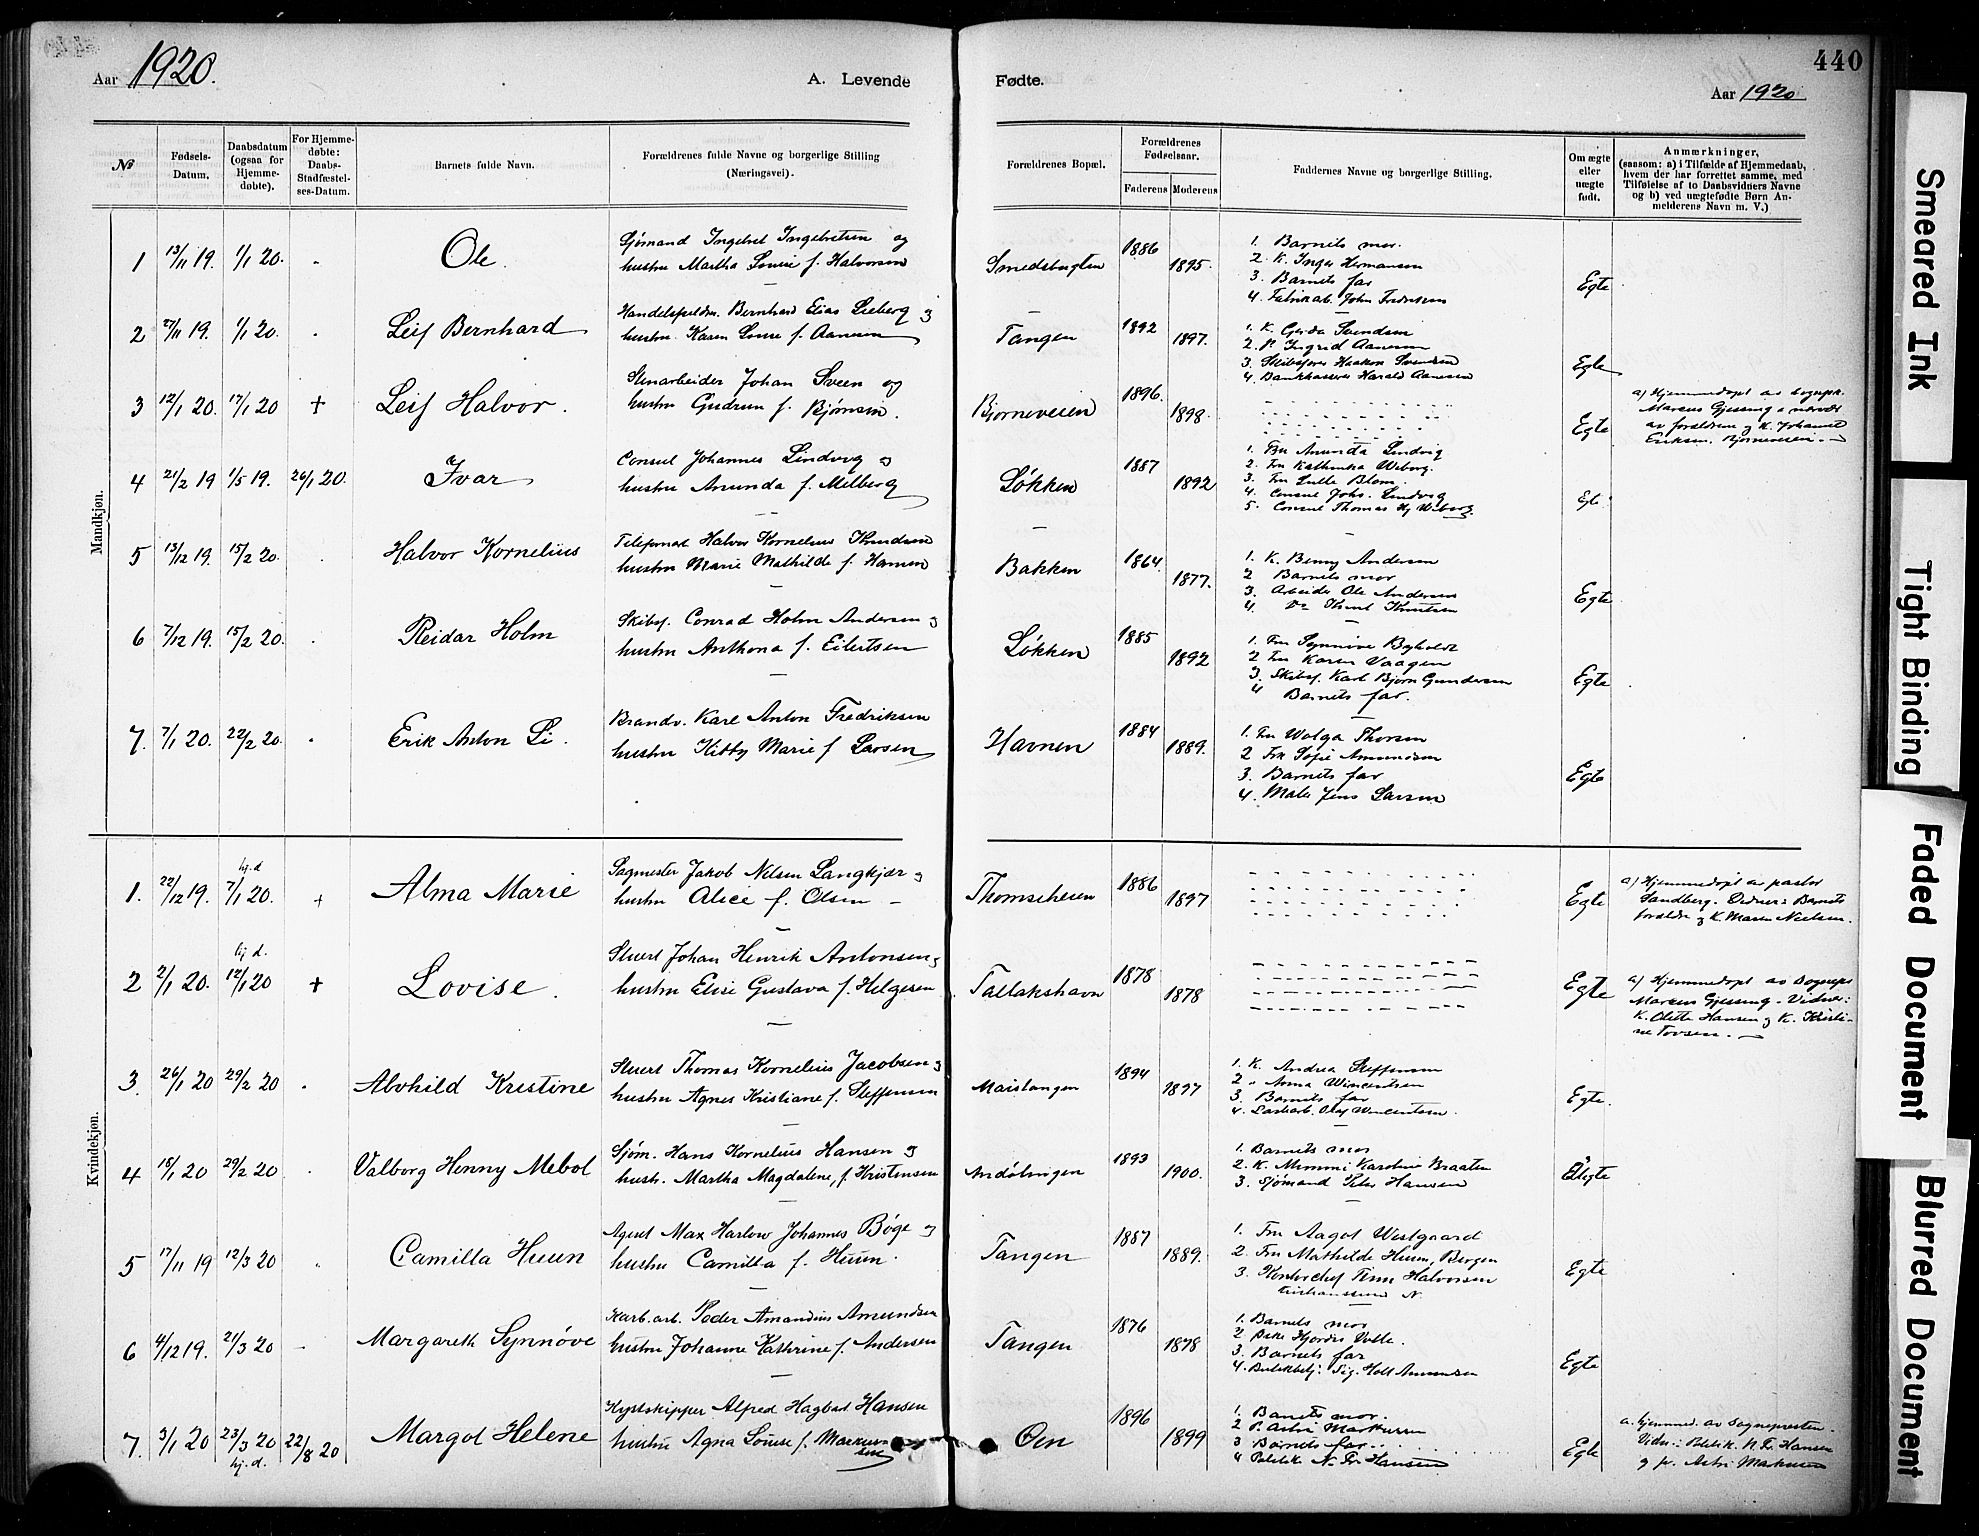 Aar 1920.
A. Levende
Fødte.
440
Aar 1920
No
Fødsels-Datum.
Daabsdatum (ogsaa for Hjemme-døbte).
For Hjemme-døbte: Daabs-Stadfæstel-ses-Datum.
Barnets fulde Navn.
Forældrenes fulde Navne og borgerlige Stilling (Næringsvei).
Forældrenes Bopæl.
Forældrenes Fødselsaar.
Faderens
Moderens
Faddernes Navne og borgerlige Stilling.
Om ægte eller uægte født.
Anmærkninger,
(saasom: a) i Tilfælde af Hjemmedaab,
hvem der har forrettet samme, med
Tilføielse af to Daabsvidners Navne
og b) ved uægtefødte Børn An-
melderens Navn m. V.)
Mandkjøn.
1 13/11 19. 1/1 20. Ole.
Sjømand Ingebret Ingebretsen og
hustru Martha Louise f. Halvorsen
Smedsbugten 1886 1895.
1. Barnets mor.
2. K. Inger Hermansen
3. Barnets far
4. Fabrikarb. John Fredriksen
Egte
2 19. 1/1 20. Leif Bernhard
Bernhard Elias Lieberg og
hustru Karen Louise f. Aanesen
Tangen 1892 1897.
1. K. Gerda Svendsen
2. P. Ingrid Aanesen
3. Skibsfører Haakon Svendsen
4. Bankkasserer Harald Aanesen
Egte
3 12/1 20. 17/1 20 + Leif Halvor.
Stenarbeider Johan Sveen og
hustru Gudrun f. Bjørnsen.
Bjørneveien 1896. 1898.
Egte
a) Hjemmedøpt av sognepr.
Marcus Gjessing i nærvær
av forældrene og K. Johanne
Eriksen. Bjørneveien.
4 21/2 19 1/5 19. 26/1 20. Ivar
Consul Johannes Lindvig og
hustru Amunda f. Milberg
Løkken 1887 1892
1. Fru Amunda Lindvig
2. Fru Kathinka Wiborg.
3. Fru Lulle Blom.
4. Consul Johs. Lindvig
5. Consul Thomas Hj Wiborg.
5 13/12 19. 15/2 20 Halvor Kornelius
Halvor Kornelius Knudsen
hustru Marie Mathilde f. Hansen
Bakken 1864. 1877.
1. K. Benny Andersen
2 Barnets mor
3. Arbeider Ole Andersen
4. Do Knut Knutsen
Egte
6 7/12 19. 15/2 20. Reidar Holm
Skibsf. Conrad Holm Andersen og
hustru Anthona f. Eilertsen
Løkken 1885 1892
1. Fru Synnive Byholdt
2 Fru Karen Vaagen
3. Skibsf. Karl Bjørn Gundersen
4 Barnets far.
Egte
7. 7/1 20. 22/2 20. Erik Anton Li.
Brandv. Karl Anton Fredriksen
hustru Kitty Marie f. Larsen
Havnen 1884 1889.
1. Fru Wolga Thorsen
2 Frk Sofie Amundsen
3. Barnets far
4. Maler Jens Larsen
Egte
Kvindekjøn.
1. 22/12 19. hj.d 7/1 20. + Alma Marie
Sagmester Jakob Nilsen Langkjær og
hustru Alice f. Olsen
1886 1897
Egte
a) Hjemmedøpt av pastor
Sandberg. Vidner: Barnets
forældre og K. Maren Nielsen.
2 2/1 20. hj d. 12/1 20 + Lovise.
Stuert Johan Henrik Antonsen og
hustru Elise Gustava f. Helgesen
Tallakshavn 1878 1878
Egte
a) Hjemmedøpt av sognepr
Marcus Gjessing - Vidner:
K. Olette Hansen og K. Kristi-
ne Tovsen.
3. 26/1 20 29/2 20 Alvhild Kristine
Stuert Thomas Kornelius Jacobsen og
hustru Agnes Kristiane f. Steffensen
Maistangen 1894 1897
1. K. Andrea Steffensen
2 " Anna Wincentsen
3. Barnets far
4. Lastearb. Olaf Wincentsen.
Egte.
4 18/1 20 29/2 20 Valborg Henny Mebol
Sjøm. Hans Kornelius Hansen og
hustr. Martha Magdalene, f. Kristensen
Indølningen 1893 1900.
1. Barnets mor
2. K. Mimmi Karoline Braaten
3. Sjømand Peter Hansen
5 17/11 19 12/3 20 Camilla Huun
Agent Max Harlow Johannes Bøge og
hustru Camilla f. Huun.
Tangen 1887 1889.
1. Fru Aagot Westgaard
2. Fru Mathilde Huun, Bergen
3. Kontorchef Finn Halvorsen
Kristianssund N.
Egte
6 4/12 19. 21/3 20 Margareth Synnøve
Peder Amandius Amundsen
hustru Johanne Kathrine f. Andersen
Tangen 1876 1878
1. Barnets mor
2 Hjørdis
3. Barnets far
4. Butikbetj. Sig. Holt Amundsen
Egte
7. 3/1 20 23/3 20 hj.d. 22/8 20 Margot Helene
Kystskipper Alfred Hagbart Hansen
hustru Agna Louise f. Markus-
sen
Øen 1896 1899
1. Barnets mor.
2 P. Astri Markussen
3 Barnets far.
4 Politik N. Fr. Hansen
Egte
a. hjemmed. av sognepresten.
Vidn.: Politik. N. Fr. Hansen
og pr. Astri Markussen
Smeared Ink
Tight Binding
Faded Document
Blurred Document